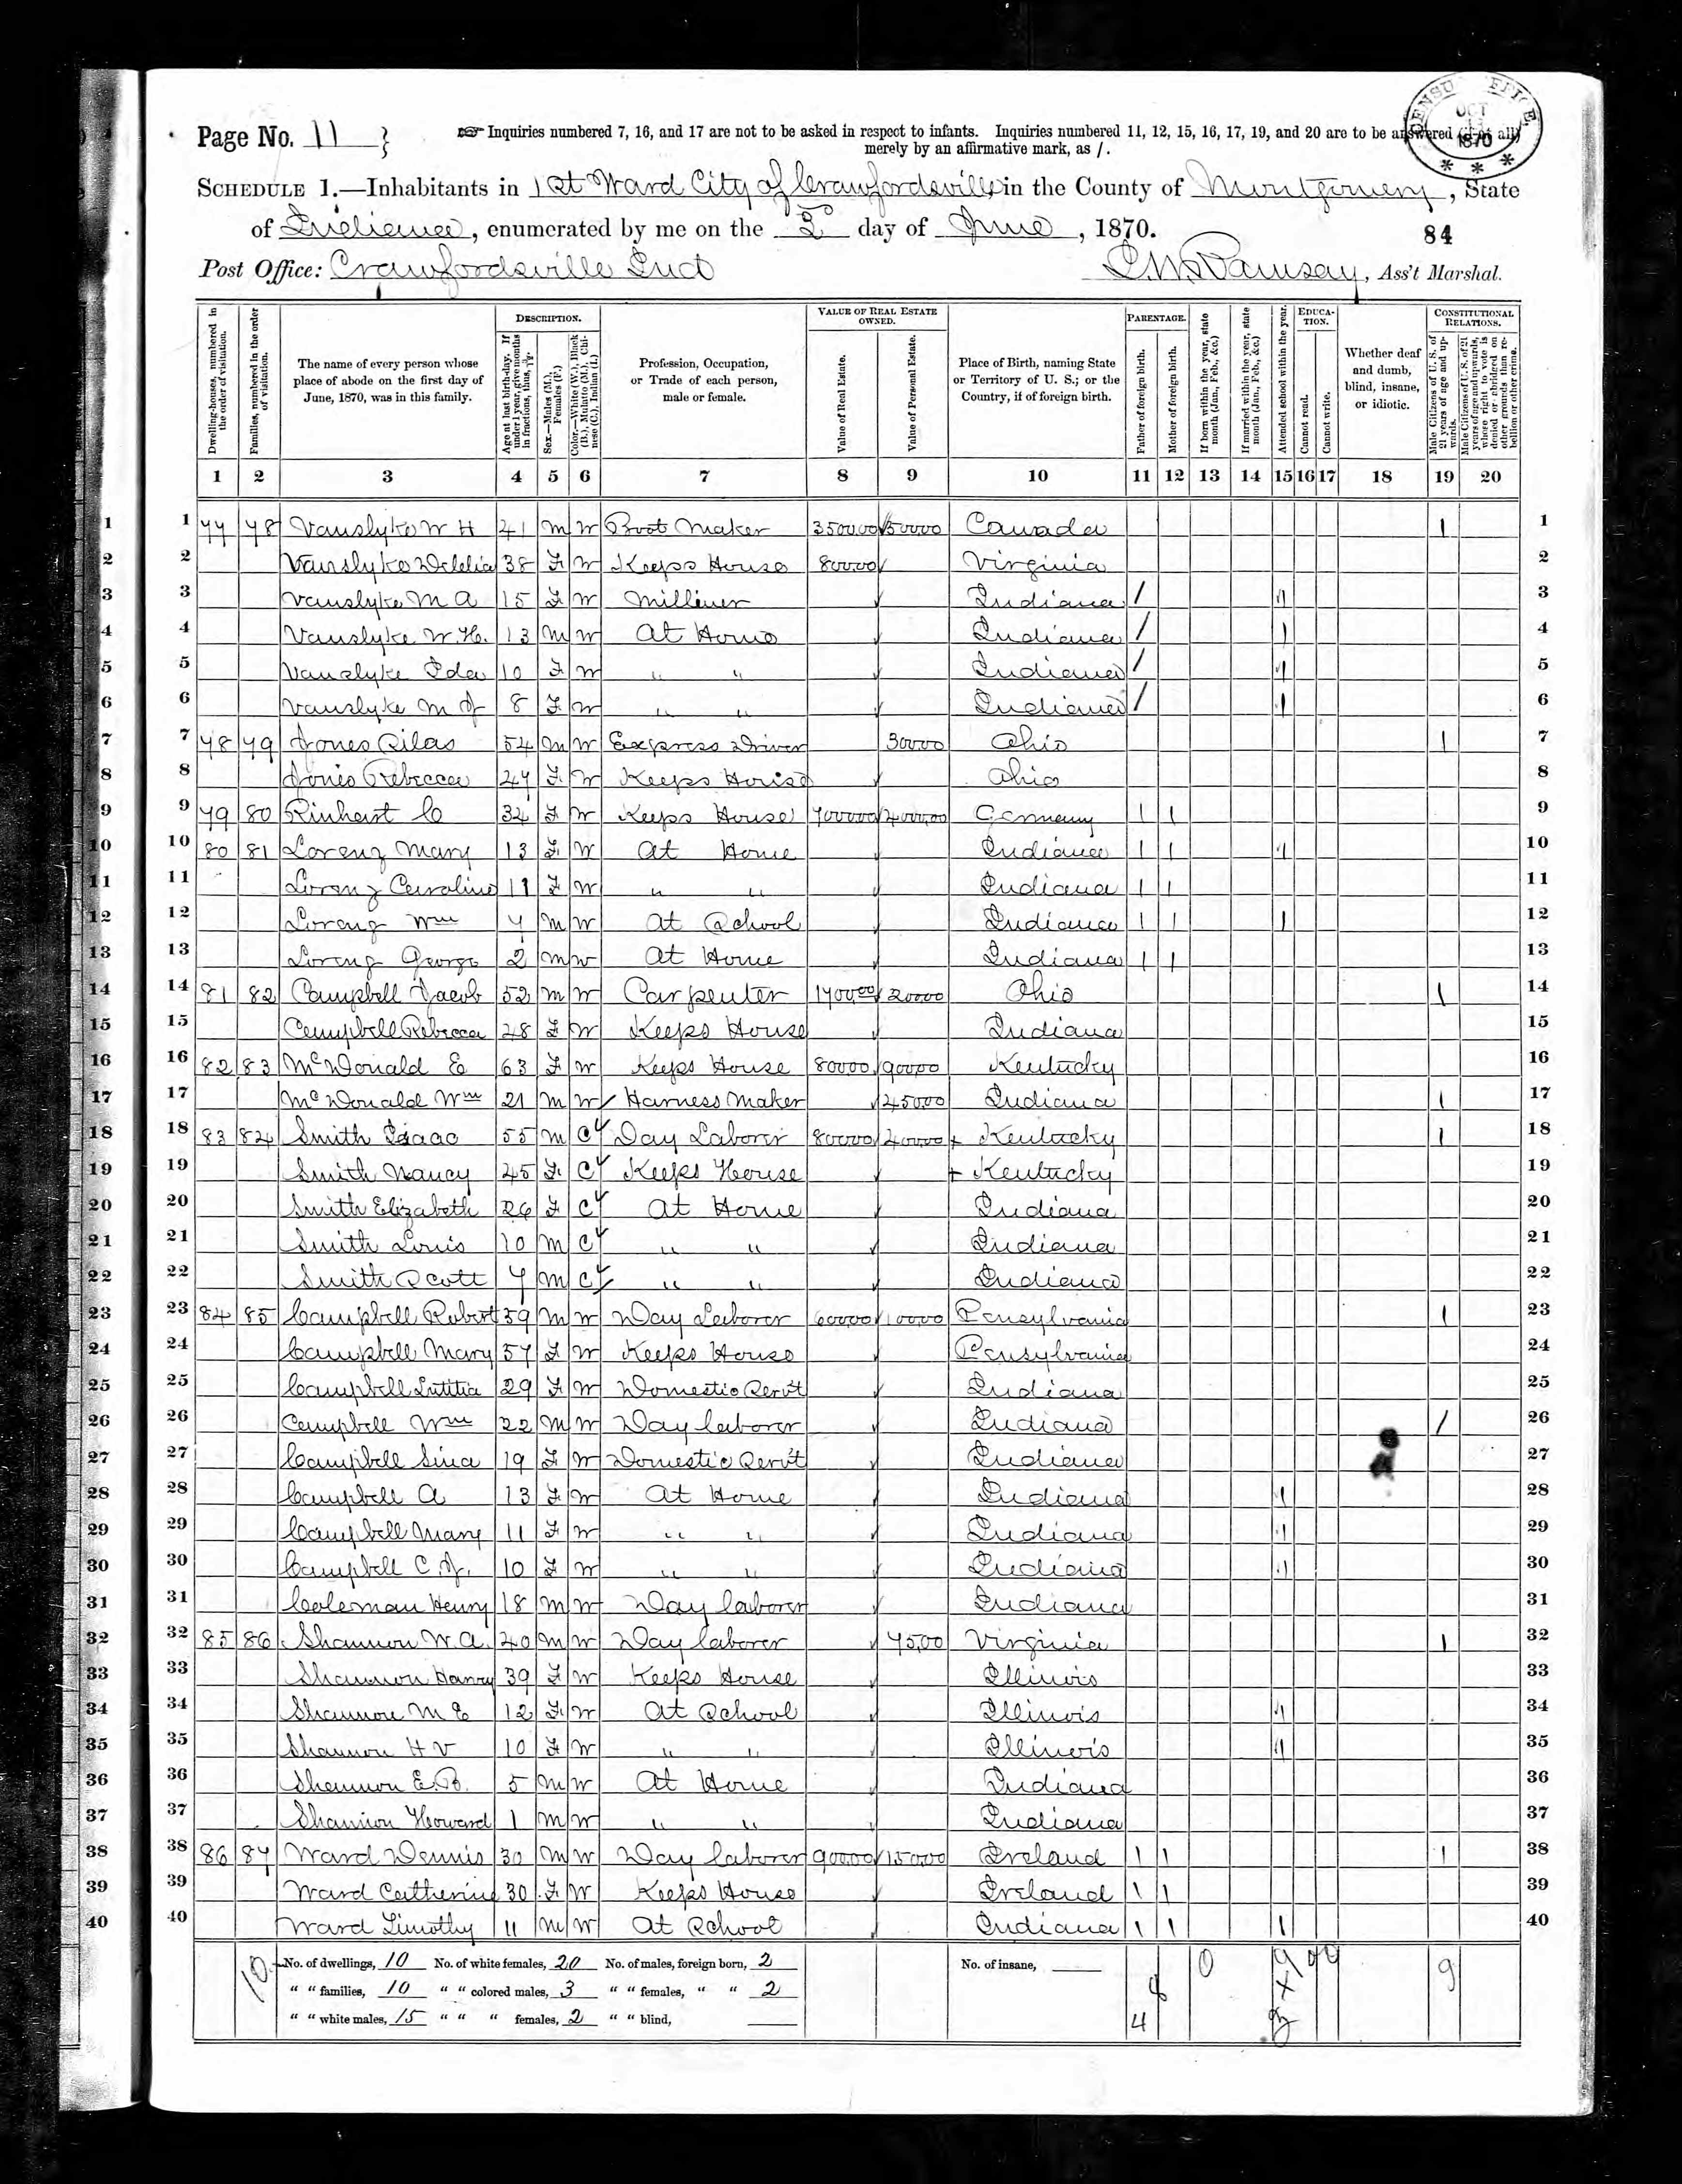 CENSUS OFFICE. OCT 1870
Page No. 11
Inquiries numbered 7, 16, and 17 are not to be asked in respect to infants. Inquiries numbered 11, 12, 15, 16, 17, 19, and 20 are to be answered (if at all)
merely by an affirmative mark, as /.
SCHEDULE 1.—Inhabitants in 1st Ward City of Crawfordsville, in the County of Montgomery, State
of Indiana, enumerated by me on the day of June, 1870.
84
Post Office: Crawfordsville Ind Ramsay, Ass't Marshal.
Dwelling-houses, numbered in the order of visitation.
Families, numbered in the order of visitation.
The name of every person whose place of abode on the first day of June, 1870, was in this family.
DESCRIPTION.
Age at last birth-day. If under 1 year, give months in fractions, thus,
Sex.—Males (M.), Females (F.)
Color.—White (W.), Black (B.), Mulatto (M.), Chinese (C.), Indian (I.)
Profession, Occupation, or Trade of each person, male or female.
VALUE OF REAL ESTATE OWNED.
Value of Real Estate.
Value of Personal Estate.
Place of Birth, naming State or Territory of U. S.; or the Country, if of foreign birth.
PARENTAGE.
Father of foreign birth.
Mother of foreign birth.
If born within the year, state month (Jan., Feb., &c.)
If married within the year, state month (Jan., Feb., &c.)
Attended school within the year.
EDUCATION.
Cannot read.
Cannot write.
Whether deaf and dumb, blind, insane, or idiotic.
CONSTITUTIONAL RELATIONS.
Male Citizens of U. S. of 21 years of age and upwards.
Male Citizens of U. S. of 21 years of age and upwards, whose right to vote is denied or abridged on other grounds than rebellion or other crime.
1 2 3 4 5 6 7 8 9 10 11 12 13 14 15 16 17 18 19 20
1 77 78 Vanslyke W H 41 M W Boot Maker 3500.00 1500.00 Canada 1 1
2 Vanslyke 38 F W Keeps House 800.00 Virginia 2
3 Vanslyke M A 15 F W Milliner Indiana / 1 3
4 Vanslyke W. H. 13 M W At Home Indiana / 1 4
5 Vanslyke Ida 10 F W " " Indiana / 1 5
6 Vanslyke M J 8 F W " " Indiana / 1 6
7 78 79 Jones Silas 54 M W Express Driver 300.00 Ohio 1 7
8 Jones Rebecca 47 F W Keeps House Ohio 8
9 79 80 Rinhart C 34 F W Keeps House 7000.00 4000.00 Germany 1 1 9
10 80 81 Lorenz Mary 13 F W At Home Indiana 1 1 1 10
11 Lorenz Caroline 11 F W " " Indiana 1 1 11
12 Lorenz Wm 7 M W At School Indiana 1 1 1 12
13 Lorenz George 2 M W At Home Indiana 1 1 13
14 81 82 Campbell Jacob 52 M W Carpenter 1700.00 200.00 Ohio 1 14
15 Campbell Rebecca 48 F W Keeps House Indiana 15
16 82 83 McDonald E 63 F W Keeps House 800.00 900.00 Kentucky 16
17 McDonald Wm 21 M W Harness Maker 450.00 Indiana 1 17
18 83 84 Smith Isaac 55 M C Day Laborer 800.00 400.00 + Kentucky 1 18
19 Smith Nancy 45 F C Keeps House + Kentucky 19
20 Smith Elizabeth 26 F C At Home Indiana 20
21 Smith Louis 10 M C " " Indiana 21
22 Smith Scott 7 M C " " Indiana 22
23 84 85 Campbell Robert 59 M W Day Laborer 600.00 100.00 Pensylvania 1 23
24 Campbell Mary 57 F W Keeps House Pensylvania 24
25 Campbell Lutitia 29 F W Domestic Servt Indiana 25
26 Campbell Wm 22 M W Day laborer Indiana / 26
27 Campbell Sina 19 F W Domestic Servt Indiana 27
28 Campbell A 13 F W At Home Indiana 1 28
29 Campbell Mary 11 F W " " Indiana 1 29
30 Campbell C. J. 10 F W " " Indiana 1 30
31 Coleman Henry 18 M W Day laborer Indiana 31
32 85 86 Shannon W. A. 40 M W Day laborer 75.00 Virginia 1 32
33 Shannon 39 F W Keeps House Illinois 33
34 Shannon M E 12 F W At School Illinois 1 34
35 Shannon H V 10 F W " " Illinois 1 35
36 Shannon E. B. 5 M W At Home Indiana 36
37 Shannon Howard 1 M W " " Indiana 37
38 86 87 Ward Dennis 30 M W Day laborer 900.00 150.00 Ireland 1 1 1 38
39 Ward Catherine 30 F W Keeps House Ireland 1 1 39
40 Ward Timothy 11 M W At School Indiana 1 1 1 40
10 No. of dwellings, 10 No. of white females, 20 No. of males, foreign born, 2 No. of insane, 0 9 9
" " families, 10 " " colored males, 3 " " females, " " 2 8
" " white males, 15 " " " females, 2 " " blind, 4